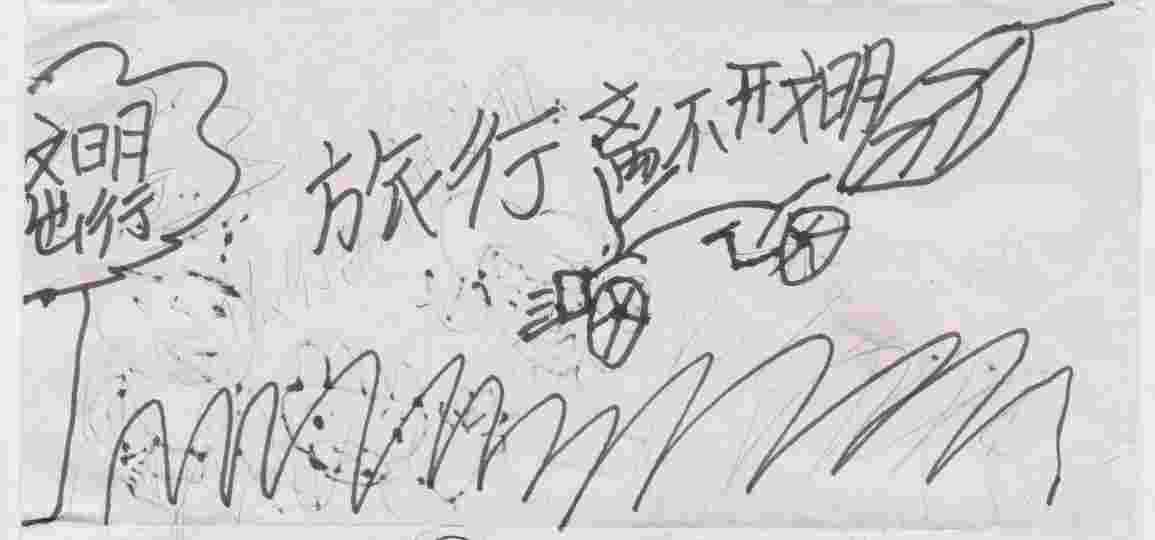 文明
也行
旅行离不开文明